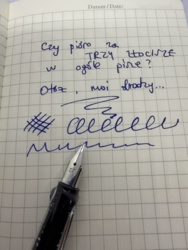 Datum/Date:
Czy pióro za
TRZY ZŁOCISZE
w ogóle pisze?
Otóż, moi drodzy...